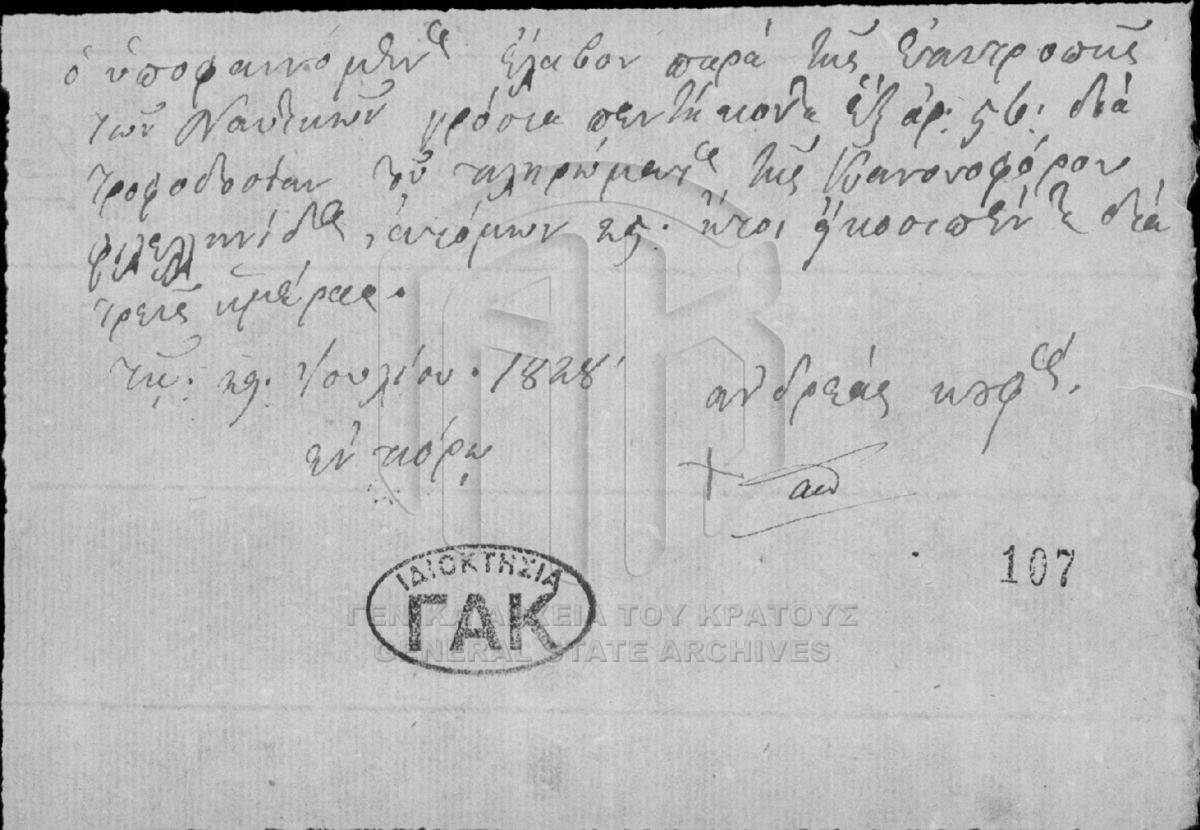 ὁ ὑποφαινόμενος ἔλαβον παρὰ τῆς Ἐπιτροπῆς
τῶν Ναυτικῶν γρόσια πεντήκοντα ἓξ ἀρ: 56: διὰ
τροφοδοσίαν τοῦ πληρώματος τῆς Κανονοφόρου
φιλελληνίδος, ἀτόμων 25. ἤτοι ἠκοσιπέντε διὰ
τρεῖς ἡμέρας.
τῇ. 29. Ἰουλίου. 1828
ἀνδρέας
ἐν πόρῳ
ΙΔΙΟΚΤΗΣΙΑ
ΓΑΚ
107
ΓΕΝΙΚΑ ΑΡΧΕΙΑ ΤΟΥ ΚΡΑΤΟΥΣ
GENERAL STATE ARCHIVES